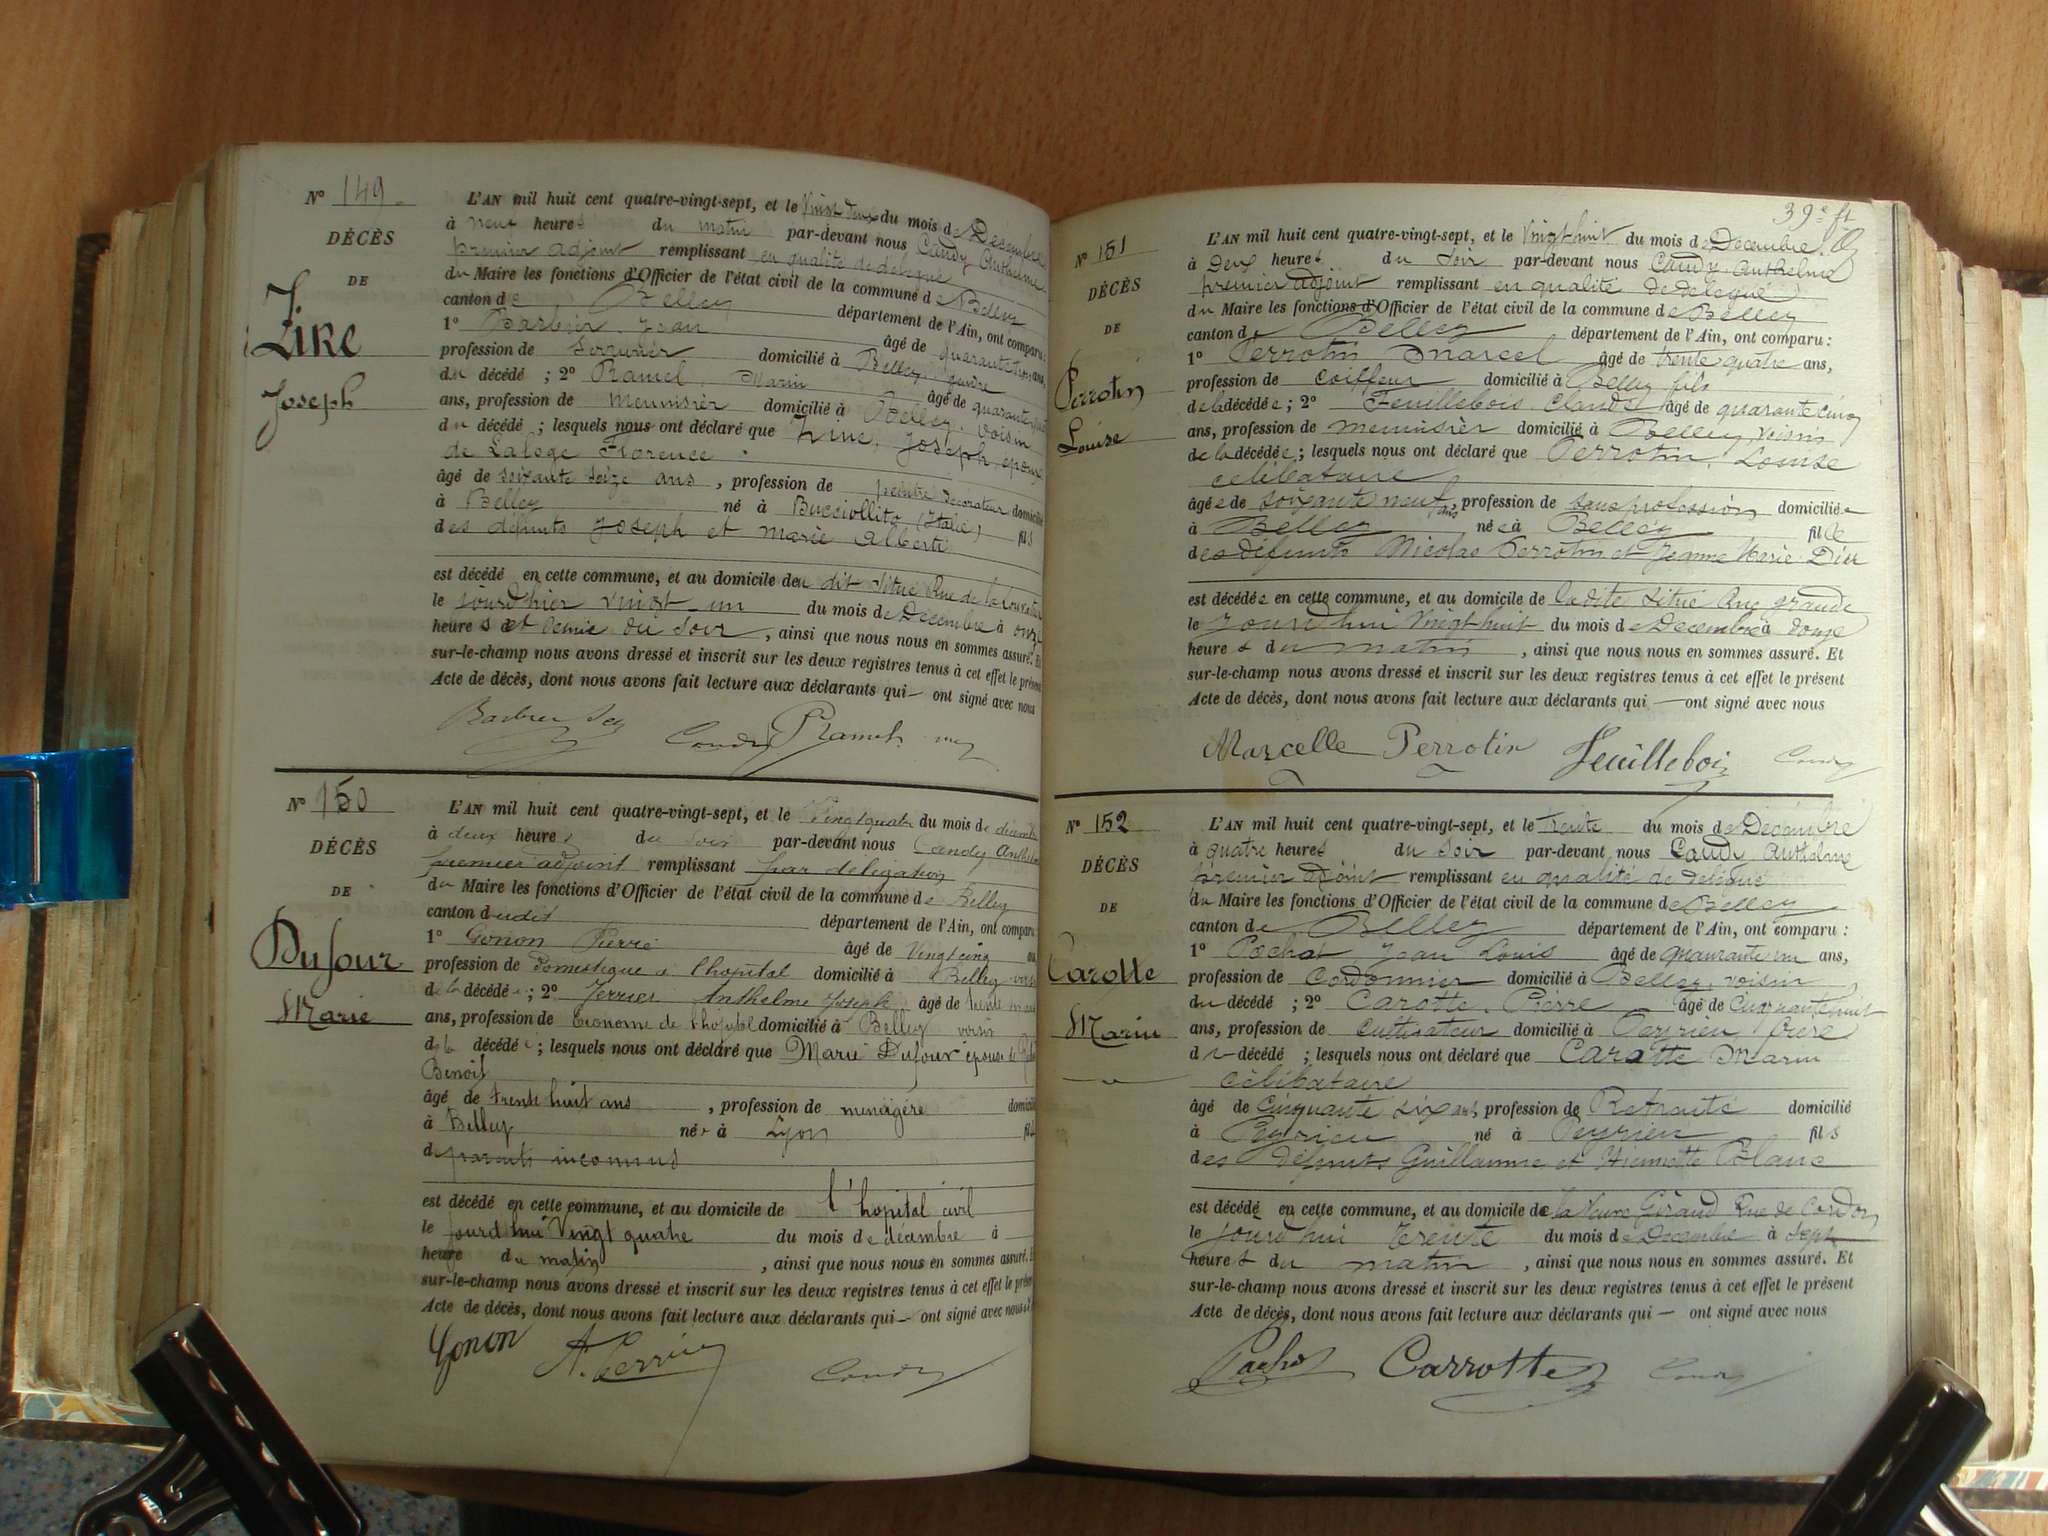 N° 149
DÉCÈS
DE
Zire
Joseph
L'AN mil huit cent quatre-vingt-sept, et le Vingt deux du mois de Décembre
à neuf heures du matin par-devant nous Candy Anthelme
premier adjoint remplissant en qualité de délégué
du Maire les fonctions d'Officier de l'état civil de la commune de Belley
canton de Belley département de l'Ain, ont comparu :
1° Barbier Jean âgé de quarante trois ans,
profession de Serrurier domicilié à Belley gendre
du décédé ; 2° Ramel Marin âgé de quarante
ans, profession de menuisier domicilié à Belley, voisin
du décédé ; lesquels nous ont déclaré que Joseph, époux
de Laloge Florence
âgé de soixante seize ans, profession de peintre décorateur domicilié
à Belley né à Bucciollito (Italie) fils
des défunts Joseph et Marie Alberti
est décédé en cette commune, et au domicile deu dit situé Rue de la
le jourd'hier vingt un du mois de Décembre à onze
heures et demie du soir, ainsi que nous nous en sommes assuré. Et
sur-le-champ nous avons dressé et inscrit sur les deux registres tenus à cet effet le présent
Acte de décès, dont nous avons fait lecture aux déclarants qui — ont signé avec nous
Barbier Candy Ramel
N° 150
DÉCÈS
DE
Dufour
Marie
L'AN mil huit cent quatre-vingt-sept, et le Vingt quatre du mois de décembre
à deux heures du soir par-devant nous Candy Anthelme
premier adjoint remplissant par délégation
du Maire les fonctions d'Officier de l'état civil de la commune de Belley
canton dudit département de l'Ain, ont comparu
1° Gonon Pierre âgé de Vingt cinq ans
profession de Domestique à l'hopital domicilié à Belley voisin
de la décédée ; 2° Ferrier Anthelme Joseph âgé de trente
ans, profession de Econome de l'hopital domicilié à Belley voisin
de la décédée ; lesquels nous ont déclaré que Marie Dufour épouse de
Benoit
âgé de trente huit ans, profession de ménagère domicilié
à Belley née à Lyon fille
de parents inconnus
est décédé en cette commune, et au domicile de l'hopital civil
le jourd'hui Vingt quatre du mois de décembre à —
heure du matin, ainsi que nous nous en sommes assuré. Et
sur-le-champ nous avons dressé et inscrit sur les deux registres tenus à cet effet le présent
Acte de décès, dont nous avons fait lecture aux déclarants qui — ont signé avec nous
Gonon A. Ferrier Candy
39e ft
N° 151
DÉCÈS
DE
Perrotin
Louise
L'AN mil huit cent quatre-vingt-sept, et le Vingt huit du mois de Décembre
à Deux heures du Soir par-devant nous Candy Anthelme
premier adjoint remplissant en qualité de délégué
du Maire les fonctions d'Officier de l'état civil de la commune de Belley
canton de Belley département de l'Ain, ont comparu :
1° Perrotin Marcel âgé de trente quatre ans,
profession de coiffeur domicilié à Belley fils
de la décédée ; 2° Feuillebois Claude âgé de quarante cinq
ans, profession de menuisier domicilié à Belley voisin
de la décédée ; lesquels nous ont déclaré que Perrotin, Louise
célibataire
âgée de soixante neuf ans, profession de sans profession domiciliée
à Belley née à Belley fille
des défunts Nicolas Perrotin et Jeanne Marie Dieu
est décédée en cette commune, et au domicile de la dite situé Rue grande
le jourd'hui Vingt huit du mois de Décembre à douze
heures du matin, ainsi que nous nous en sommes assuré. Et
sur-le-champ nous avons dressé et inscrit sur les deux registres tenus à cet effet le présent
Acte de décès, dont nous avons fait lecture aux déclarants qui — ont signé avec nous
Marcelle Perrotin Feuillebois Candy
N° 152
DÉCÈS
DE
Carotte
Marin
L'AN mil huit cent quatre-vingt-sept, et le trente du mois de Décembre
à quatre heures du soir par-devant nous Candy Anthelme
premier adjoint remplissant en qualité de délégué
du Maire les fonctions d'Officier de l'état civil de la commune de Belley
canton de Belley département de l'Ain, ont comparu :
1° Pochat Jean Louis âgé de quarante un ans,
profession de Cordonnier domicilié à Belley, voisin
du décédé ; 2° Carotte, Pierre âgé de cinquante huit
ans, profession de cultivateur domicilié à Peyrieu frère
du décédé ; lesquels nous ont déclaré que Carotte Marin
célibataire
âgé de cinquante six ans, profession de Retraité domicilié
à Peyrieu né à Peyrieu fils
des défunts Guillaume et Henriette Blanc
est décédé en cette commune, et au domicile de la Veuve Giraud Rue de Cordon
le jourd'hui trente du mois de Décembre à sept
heures du matin, ainsi que nous nous en sommes assuré. Et
sur-le-champ nous avons dressé et inscrit sur les deux registres tenus à cet effet le présent
Acte de décès, dont nous avons fait lecture aux déclarants qui — ont signé avec nous
Pochat Carrotte Candy